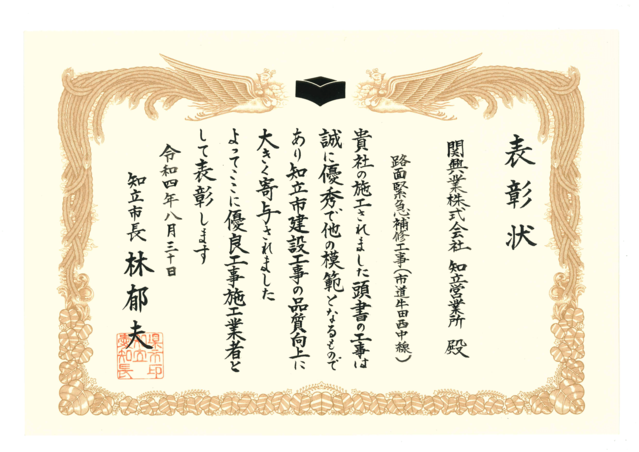 表彰状
関興業株式会社 知立営業所 殿
路面緊急補修工事(市道牛田西中線)
貴社の施工されました頭書の工事は
誠に優秀で他の模範となるもので
あり知立市建設工事の品質向上に
大きく寄与されました
よってここに優良工事施工業者と
して表彰します
令和四年八月三十日
知立市長 林郁夫